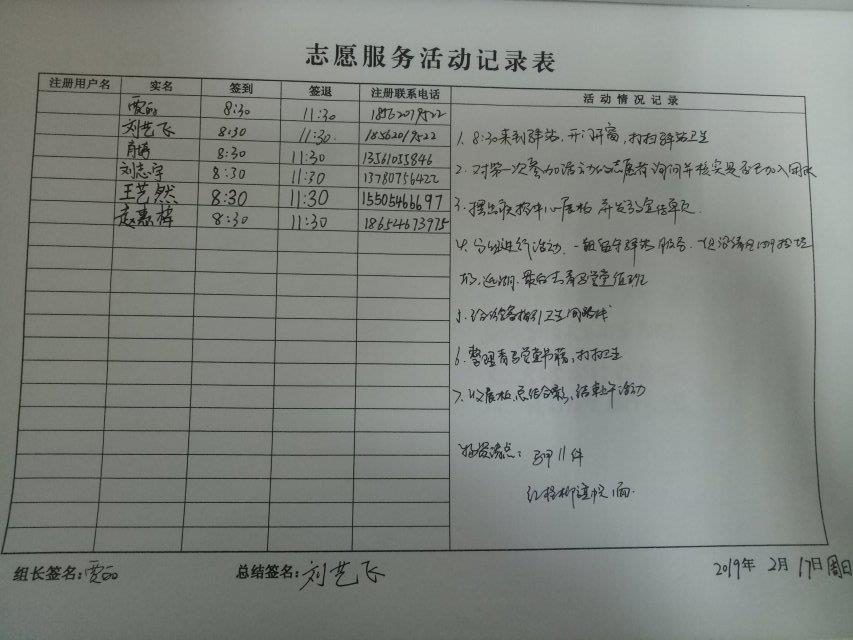 志愿服务活动记录表
注册用户名 实名 签到 签退 注册联系电话 活动情况记录
贾 8:30 11:30 18562019522
刘艺飞 8:30 11:30 18562019522
肖 8:30 11:30 13561055846
刘志宇 8:30 11:30 13780756422
王艺然 8:30 11:30 15505466697
赵惠 8:30 11:30 18654673975
1. 8:30来到驿站,开门开窗,打扫驿站卫生
2. 对第一次参加活动的志愿者询问并核实是否已加入团队
3. 摆出 展板,并发放宣传单页.
4. 分组进行活动,一组留守驿站服务,一组沿
去青马学堂值班
5. 给 指引卫生间路线
6. 整理青马学堂书籍,打扫卫生
7. 收展板,总结合影,结束上午活动
物资清点: 马甲11件
红 旗1面.
组长签名:贾 总结签名:刘艺飞 2019年 2月 17日 周日